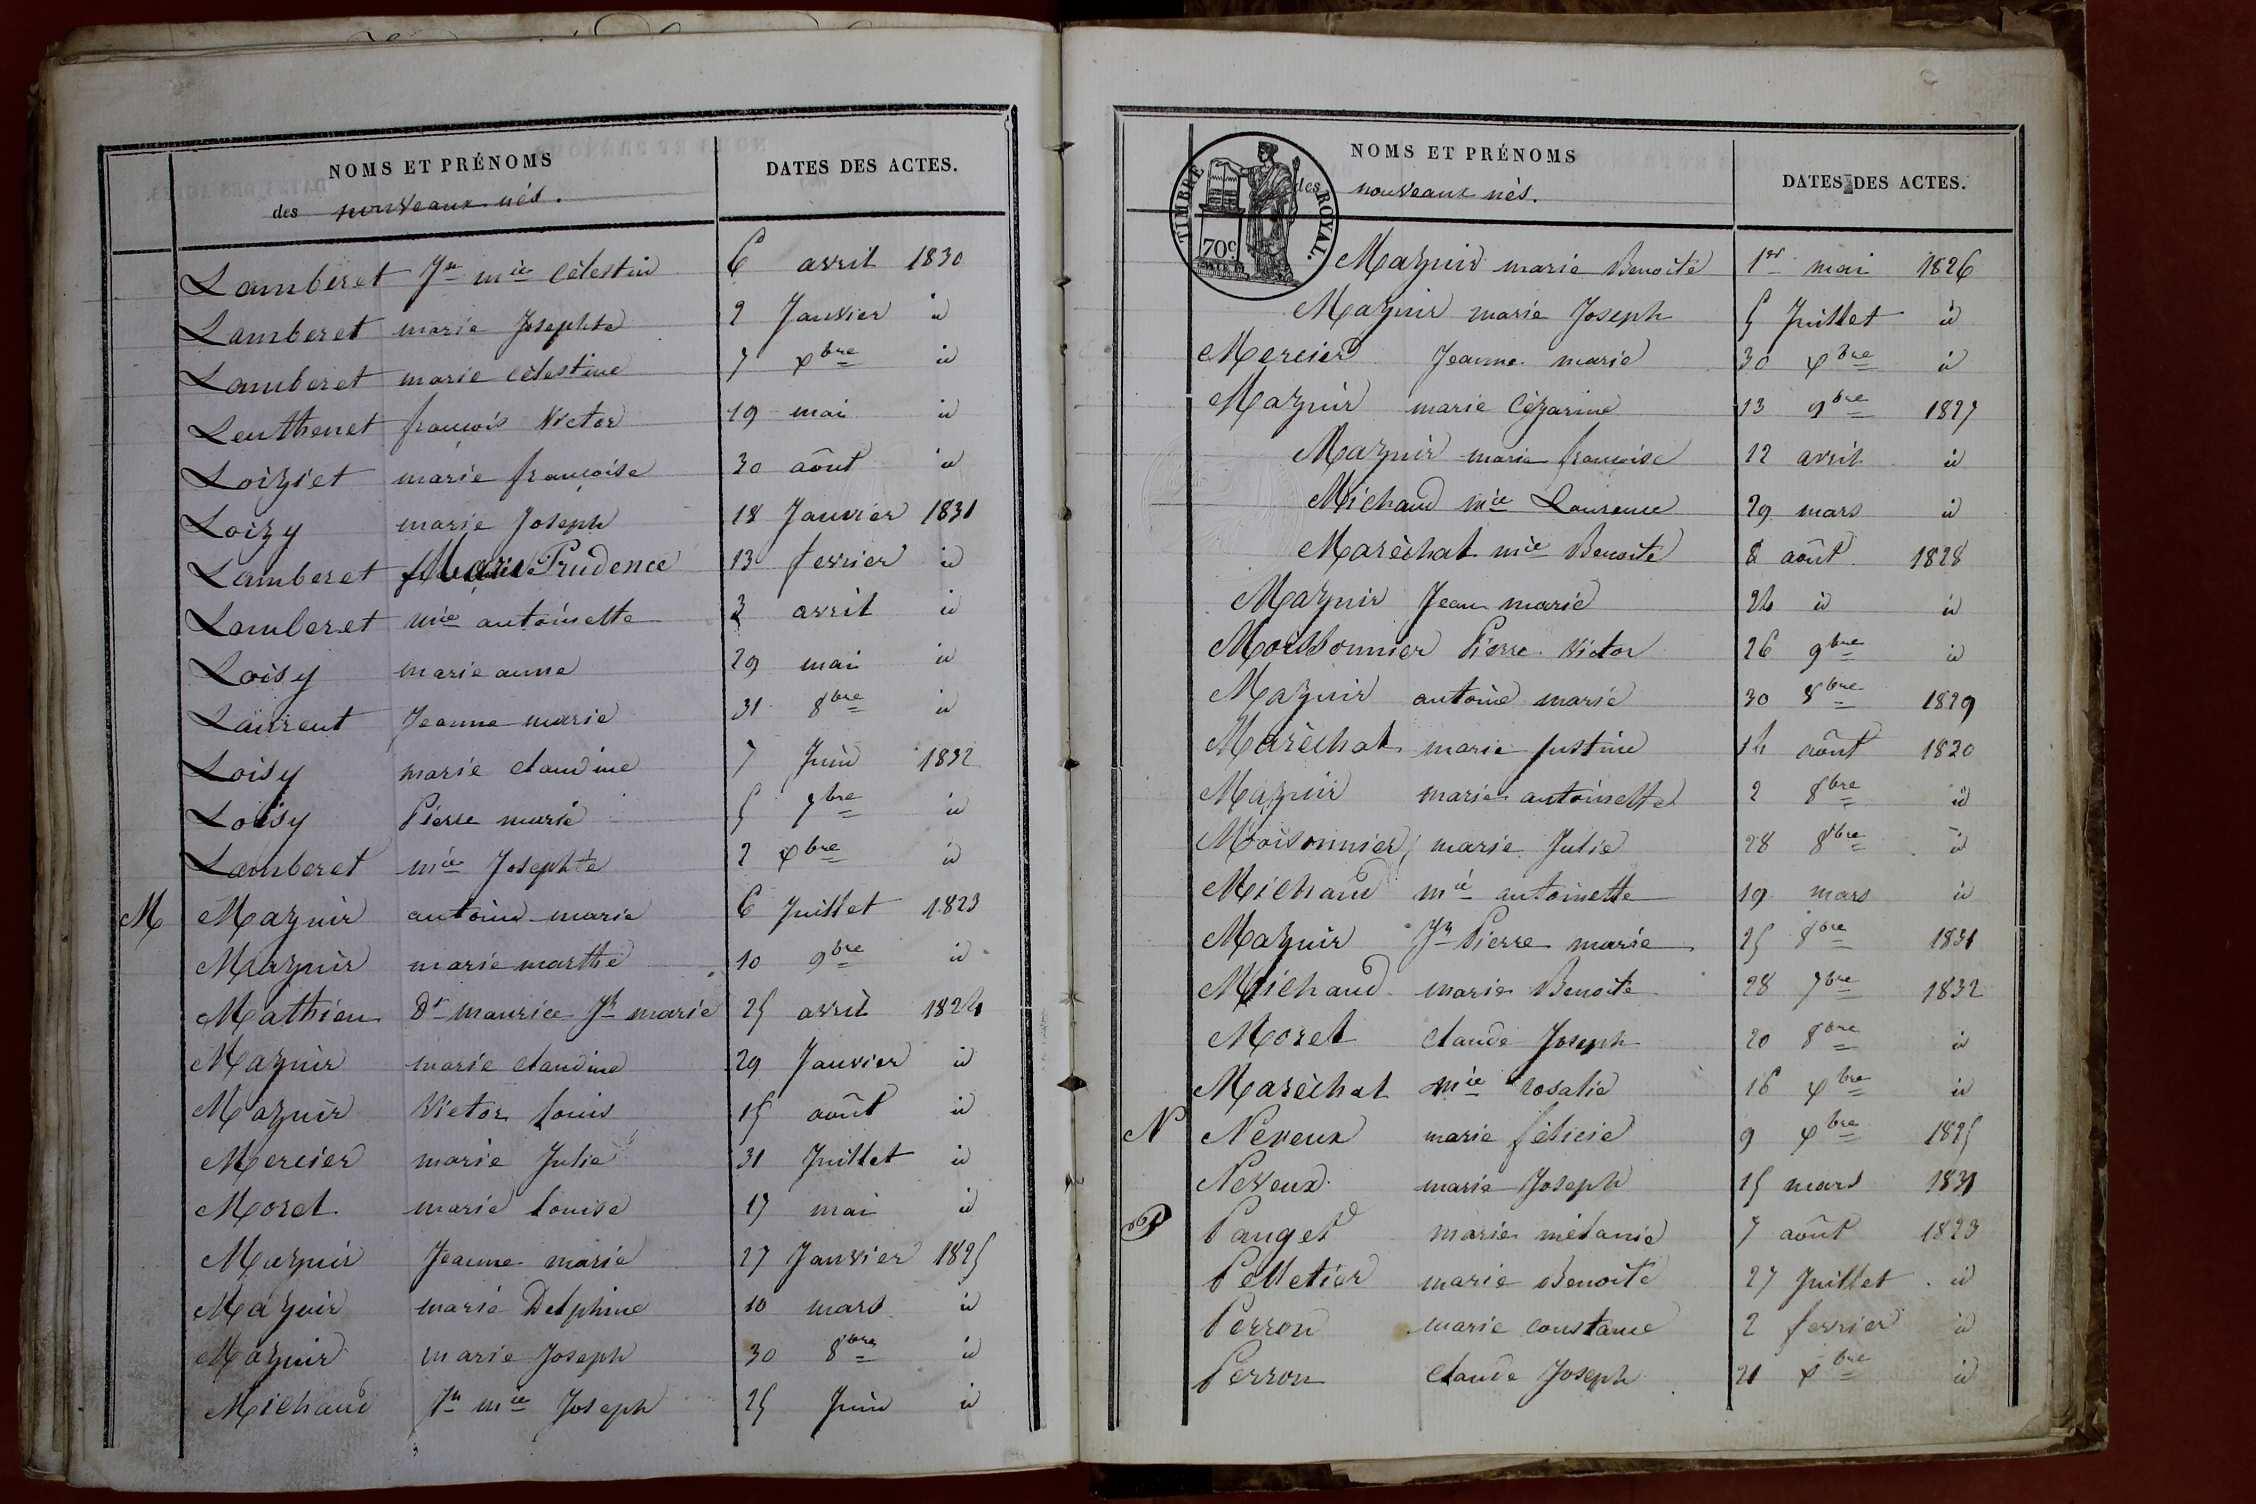 NOMS ET PRÉNOMS
DATES DES ACTES.
des nouveaux nés.
Lamberet Jn mie Célestin 6 avril 1830
Lamberet marie Josephte 2 Janvier id
Lamberet marie célestine 7 Xbre id
Leuthenet françois Victor 19 mai id
Loiziet marie françoise 30 août id
Loizy marie Joseph 18 Janvier 1831
Lamberet Marie Prudence 13 fevrier id
Lamberet mie antoinette 3 avril id
Loisy marie anne 29 mai id
Laurent Jeanne marie 31 8bre id
Loisy marie claudine 7 Juin 1832
Loisy Pierre marie 5 7bre id
Lamberet mie Josephte 2 Xbre id
M Mazuir antoine marie 6 Juillet 1823
Mazuir marie marthe 10 9bre id
Mathieu Dt maurice Jh marie 25 avril 1824
Mazuir marie claudine 29 Janvier id
Mazuir Victor louis 15 août id
Mercier marie Julie 31 Juillet id
Moret marie louise 17 mai id
Mazuir Jeanne marie 27 Janvier 1825
Mazuir marie Delphine 10 mars id
Mazuir marie Joseph 30 8bre id
Michaud Jn mie Joseph 25 Juin id
NOMS ET PRÉNOMS
DATES DES ACTES.
des nouveaux nés.
TIMBRE ROYAL.
70c.
Mazuir marie Benoite 1er mai 1826
Mazuir marie Joseph 5 Juillet id
Mercier Jeanne marie 30 Xbre id
Mazuir marie Cézarine 13 9bre 1827
Mazuir marie françoise 12 avril id
Michaud mie Laurence 29 mars id
Maréchal mie Benoite 8 août 1828
Mazuir Jean marie 24 id id
Moissonnier Pierre Victor 26 9bre id
Mazuir antoine marie 30 8bre 1829
Maréchal marie Justine 14 août 1830
Mazuir marie antoinette 2 8bre id
Moisonnier marie Julie 28 8bre id
Michaud mie antoinette 19 mars id
Mazuir Jh Pierre marie 25 8bre 1831
Michaud marie Benoite 28 7bre 1832
Moret claude Joseph 20 8bre id
Maréchal mie rosalie 16 Xbre id
N Neveux marie félicie 9 Xbre 1825
Neveux marie Joseph 15 mars 1831
P Pauget marie mélanie 7 août 1823
Pelletier marie Benoite 27 Juillet id
Perron marie constance 2 fevrier id
Perron claude Joseph 21 Xbre id